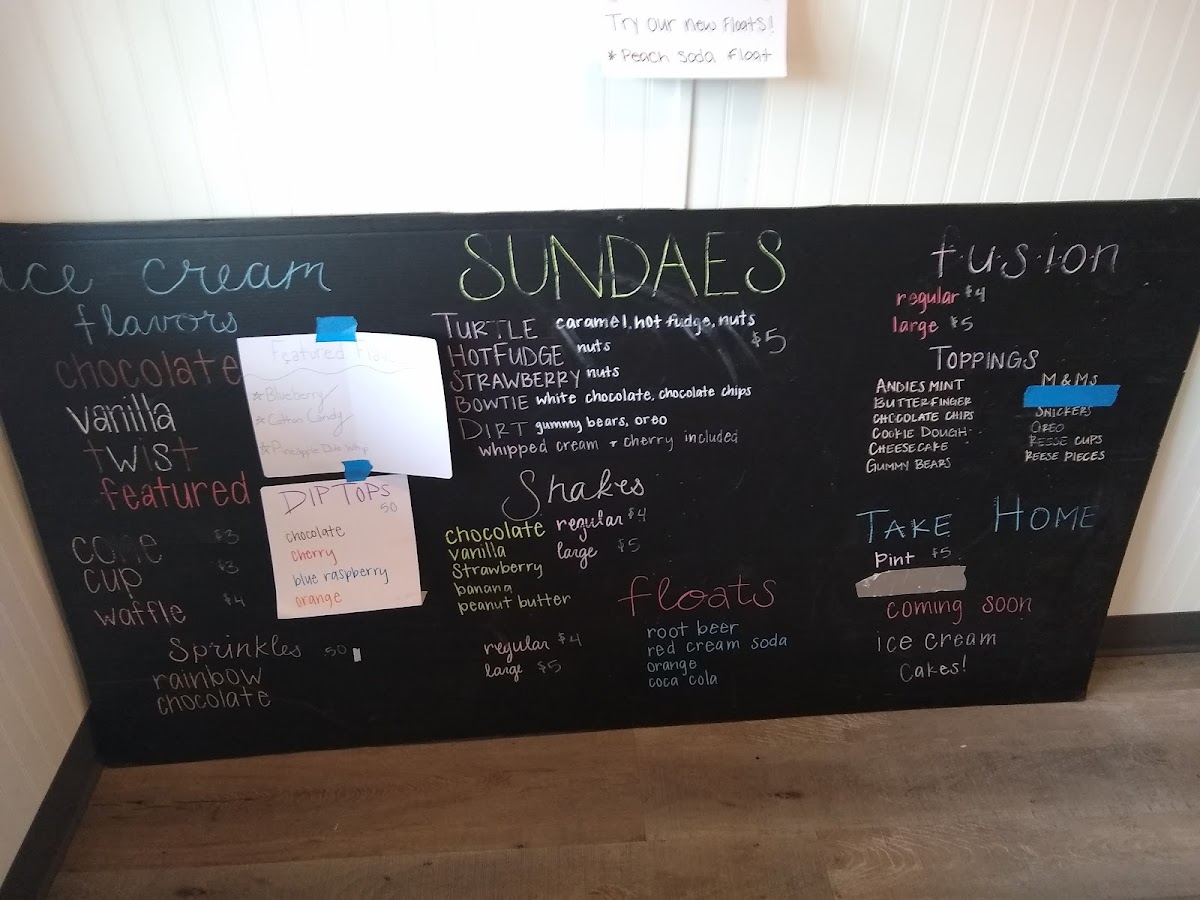 Try our new Floats!
* Peach Soda Float
ice cream
flavors
chocolate
vanilla
twist
featured
cone $3
cup $3
waffle $4
Sprinkles .50
rainbow
chocolate
Featured
* Blueberry
* Cotton Candy
* Pineapple Dole Whip
DIP TOPS
50
chocolate
cherry
blue raspberry
orange
SUNDAES
TURTLE caramel, hot fudge, nuts
$5
HOT FUDGE nuts
STRAWBERRY nuts
BOWTIE white chocolate, chocolate chips
DIRT gummy bears, oreo
whipped cream + cherry included
Shakes
chocolate
vanilla
Strawberry
banana
peanut butter
regular $4
large $5
floats
root beer
red cream soda
orange
coca cola
regular $4
large $5
f·u·s·i·o·n
regular $4
large $5
TOPPINGS
ANDIES MINT
BUTTERFINGER
CHOCOLATE CHIPS
COOKIE DOUGH
CHEESECAKE
GUMMY BEARS
M & MS
SNICKERS
OREO
REESE CUPS
REESE PIECES
TAKE HOME
Pint $5
coming soon
ice cream
Cakes!